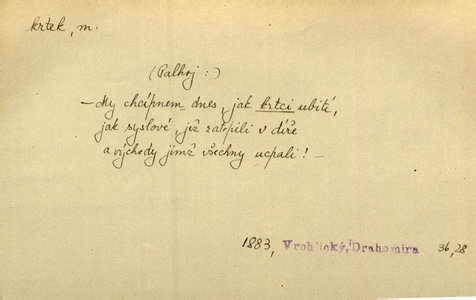 krtek, m.
(Palhoj:)
– My chcípnem dnes, jak krtci ubití,
jak syslové, již zatopili v díře
a východy jimž všechny ucpali! –
1883, Vrchlický, Drahomíra 36,28